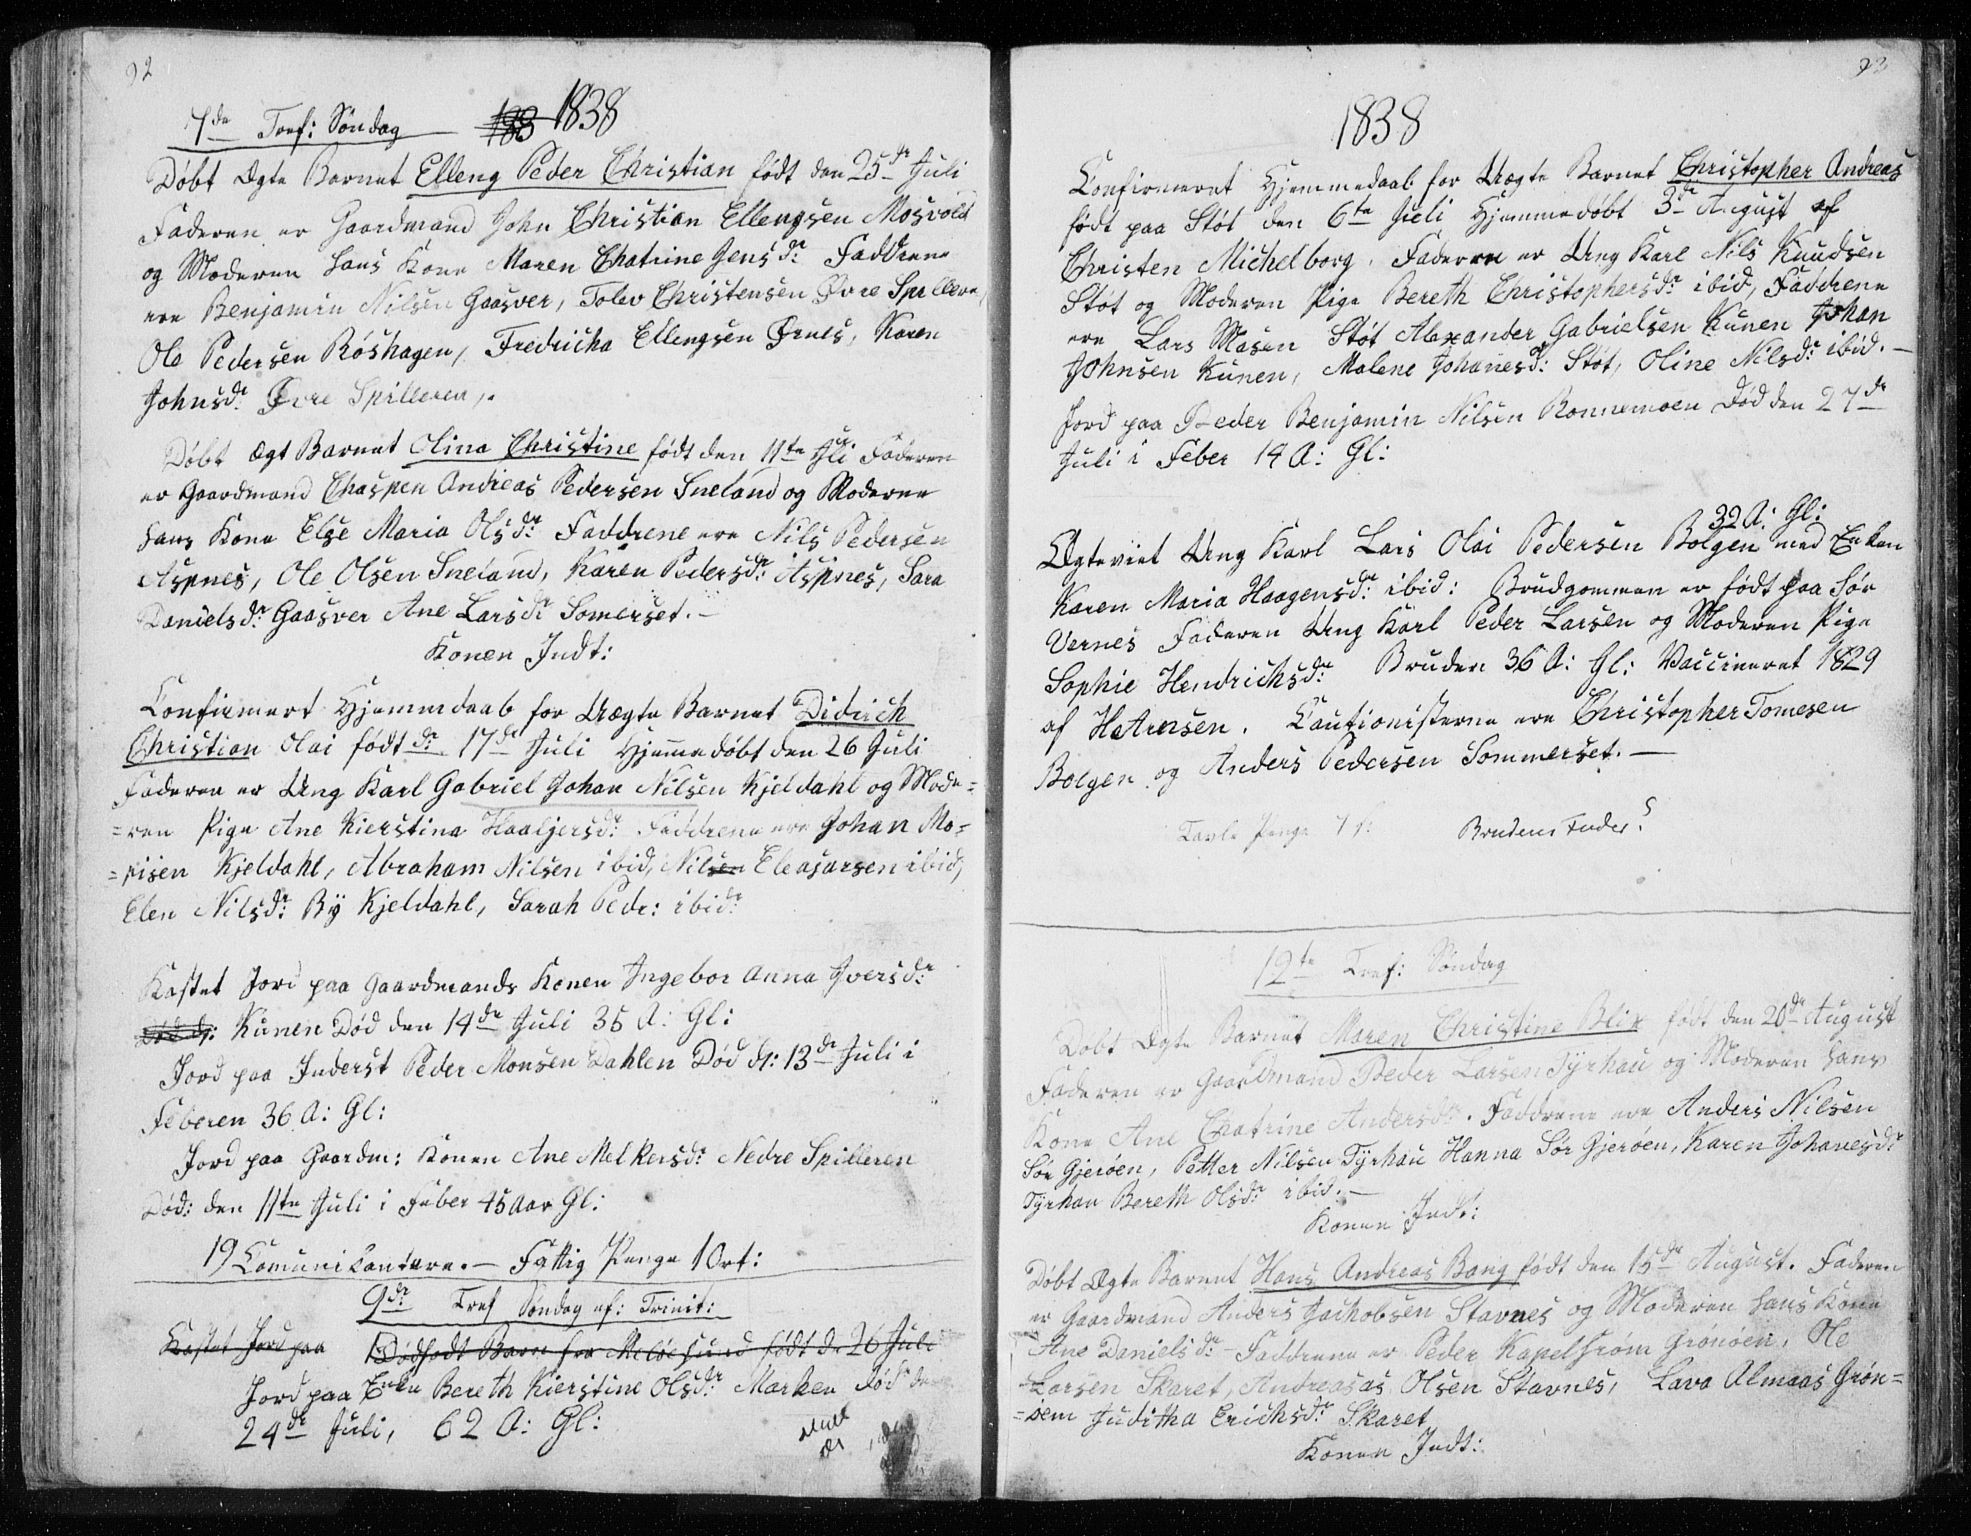 92
7de Tref: Søndag 183 1838
Døbt Ægte Barnet Elleng Peder Christian født den 25de Juli
Faderen er Gaardmand John Christian Ellengsen Mosvold
og Moderen hans Kone Maren Chatrine Jensdr: Faddrene
ere Benjamin Nilsen Gaasver, Tolev Christensen Øvre Spilleren,
Ole Pedersen Røshagen, Fredricha Ellengsen Ørnes, Karen
Johnsdr: Øvre Spilleren,.
Døbt Ægt Barnet Olina Christine født den 11te Juli Faderen
er Gaardmand Chaspen Andreas Pedersen Sneland og Moderen
hans Kone Else Maria Olsdr: Faddrene ere Nils Pedersen
Aspnes, Ole Olsen Sneland, Karen Pedersdr: Aspnes, Sara
Danielsdr: Gaasver Ane Larsdr Somerset. –
Konen Indt:
Confirmert Hjemmdaab for Uægte Barnet Didrich
Christian Olai født dr 17de Juli Hjemmedøbt den 26 Juli
Faderen er Ung Karl Gabriel Johan Nilsen Kjeldahl og Mode=
=ren Pige Ane Kierstina Haaljersdr: Faddrene ere Johan Mo=
=risen Kjeldahl, Abraham Nilsen ibid, Nilsen Eleasarsen ibid,
Elen Nilsdr: By Kjeldahl, Sarah Pedr: ibidr
Kastet Jord paa Gaardmands Konen Ingebor Anna Iversdr:
Kunen Død den 14de Juli 35 A: Gl:
Jord paa Inderst Peder Monsen Dahlen Død d: 13de Juli i
Feberen 36 A: Gl:
Jord paa Gaardm: Konen Ane Melkersdr: Nedre Spilleren
Død: den 11te Juli i Feber 45 Aar Gl:
19 Comunicantere. – Fattig Penge 1 Ort:
9de Tref Søndag ef: Trinit:
Kastet Jord paa 1 Dødfødt Barn fra Meløesund født d. 26 Juli
Jord paa Enke Bereth Kierstine Olsdr: Marken Død den
24de Juli, 62 A: Gl:
93
1838
Confirmeret Hjemmedaab for Uægte Barnet Christopher Andreas
født paa Støt den 6te Juli Hjemmedøbt 3de August af
Christen Michelborg. Faderen er Ung Karl Nils Knudsen
Støt og Moderen Pige Bereth Christophersdr: ibid, Faddrene
ere Lars Masen Støt Alexander Gabrielsen Kunen Johan
Johnsen Kunen, Malene Johanesdr: Støt, Oline Nilsdr: ibid. –
Jord paa Peder Benjamin Nilsen Ronnemoen Død den 27de
Juli i Feber 14 A: Gl:
32 A: Gl:
Ægteviet Ung Karl Lars Olai Pedersen Bolgen med Enken
Karen Maria Haagensdr: ibid: Brudgommen er født paa Sør
Vernes Faderen Ung Karl Peder Larsen og Moderen Pige
Sophie Hendrichsdr: Bruden 36 A: Gl: Vaccineret 1829
af H Arnsen. Cautionisterne ere Christopher Tomesen
Bolgen og Anders Pedersen Sommerset. –
Tavle Penge Brudens Fader?
12te Tref: Søndag
Døbt Ægte Barnet Maren Christine Blix født den 20de August
Faderen er Gaardmand Peder Larsen Tyrhau og Moderen hans
Kone Ane Chatrine Andersdr. Faddrene ere Anders Nilsen
Sør Gjerøen, Petter Nilsen Tyrhau Hanna Sør Gjerøen, Karen Johanesdr
Tyrhau Bereth Olsdr: ibid. –
Konen Indt:
Døbt Ægte Barnet Hans Andreas Bang født den 15de August. Faderen
er Gaardmand Anders Jachobsen Stavnes og Moderen hans Kone
Ane Danielsdr: Faddrene er Peder Kapelstrøm Grønøen, Ole
Larsen Skaret, Andreasas Olsen Stavnes, Lava Almaas Grøn=
=øem Juditha Erichsdr: Skaret
Konen Indt: